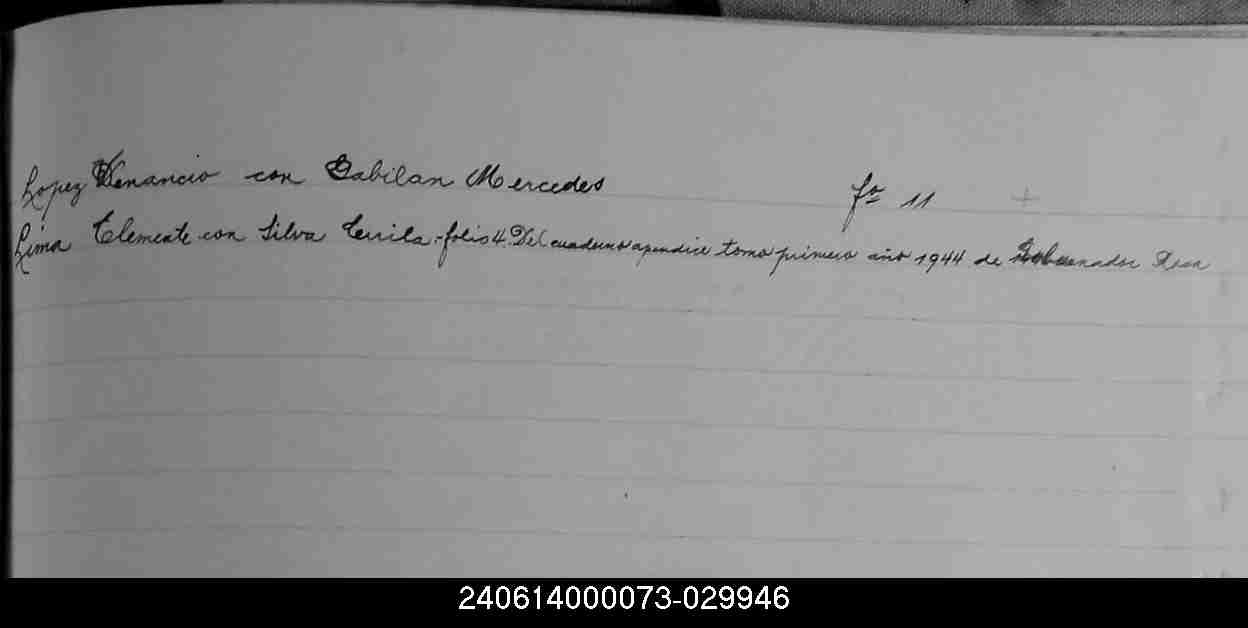 Lopez Venancio con Gabilan Mercedes fº 11 +
Lima Clemente con Silva folio 4. Del cuaderno apendice tomo primero año 1944 de Gobernador Roca
240614000073-029946